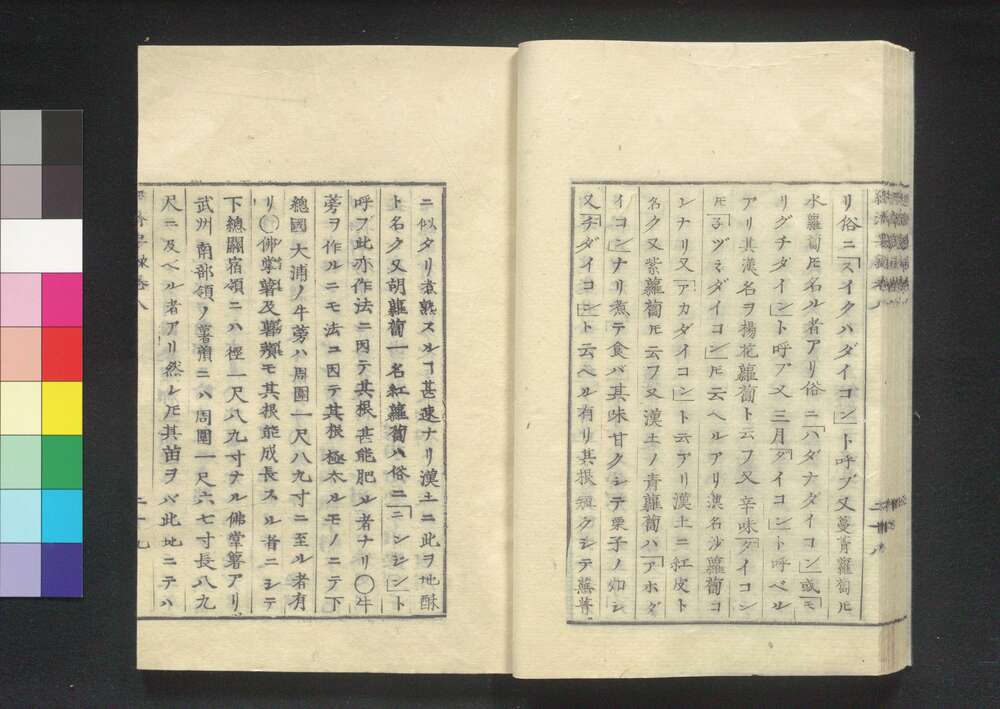 リ俗ニ「スイクハダイコン」ト呼ブ又蔓菁蘿蔔ㇳモ
水蘿蔔ㇳモ名ル者アリ俗ニ「ハダナダイコン」或「モ
リグチダイコン」ト呼ブ又三月「ダイコン」ト呼ベル
アリ其漢名ヲ楊花蘿蔔ト云フ又辛味「ダイコン」
ㇳモ「子ヅミダイコン」ㇳモ云ヘルアリ漢名沙蘿蔔コ
レナリ又「アカダイコン」ト云アリ漢土ニ紅皮ト
名ク又紫蘿蔔ㇳモ云フ又漢土ノ青蘿蔔ハ「アホダ
イコン」ナリ煮テ食バ其味甘クシテ栗子ノ如シ
又「チダイコン」ト云ヘル有リ其根短クシテ蕪菁
ニ似タリ煮熟スルヿ甚速ナリ漢土ニ此ヲ地酥
ト名ク又胡蘿蔔一名紅蘿蔔ハ俗ニ「ニンジン」ト
呼ブ此亦作法ニ因テ其根甚能肥ル者ナリ〇牛
蒡ヲ作ルニモ法ニ因テ其根極太ルモノニテ下
總國大浦ノ牛蒡ハ周圍一尺八九寸ニ至ル者有
リ〇佛掌薯及薯蕷モ其根能成長スル者ニシテ
下總關宿領ニハ徑一尺八九寸ナル佛掌薯アリ
武州南部領ノ薯蕷ニハ周圍一尺六七寸長八九
尺ニ及ベル者アリ然レㇳモ其苗ヲバ此地ニテハ
二十九